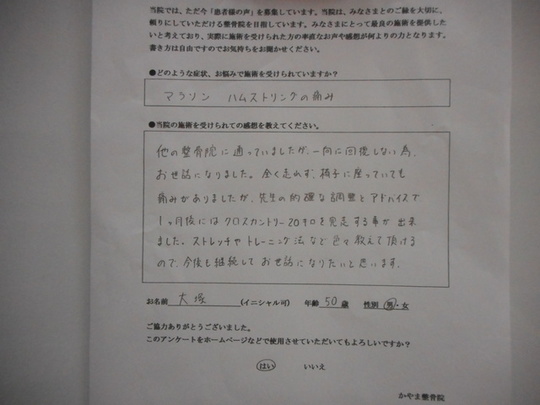 当院では、ただ今「患者様の声」を募集しています。当院は、みなさまとのご縁を大切に、
頼りにしていただける整骨院を目指しています。みなさまにとって最良の施術を提供したい
と考えており、実際に施術を受けられた方の率直なお声や感想が何よりの力となります。
書き方は自由ですのでお気持ちをお聞かせください。
●どのような症状、お悩みで施術を受けられていますか?
マラソン ハムストリングの痛み
●当院の施術を受けられての感想を教えてください。
他の整骨院に通っていましたが、一向に回復しない為、
お世話になりました。全く走れず、椅子に座っていても
痛みがありましたが、先生の的確な調整とアドバイスで
1ヶ月後にはクロスカントリー20キロを完走する事が出来
ました。ストレッチやトレーニング法など色々教えて頂ける
ので、今後も継続してお世話になりたいと思います。
お名前 大塚 (イニシャル可) 年齢 50 歳 性別 男・女
ご協力ありがとうございました。
このアンケートをホームページなどで使用させていただいてもよろしいですか?
はい いいえ
かやま整骨院